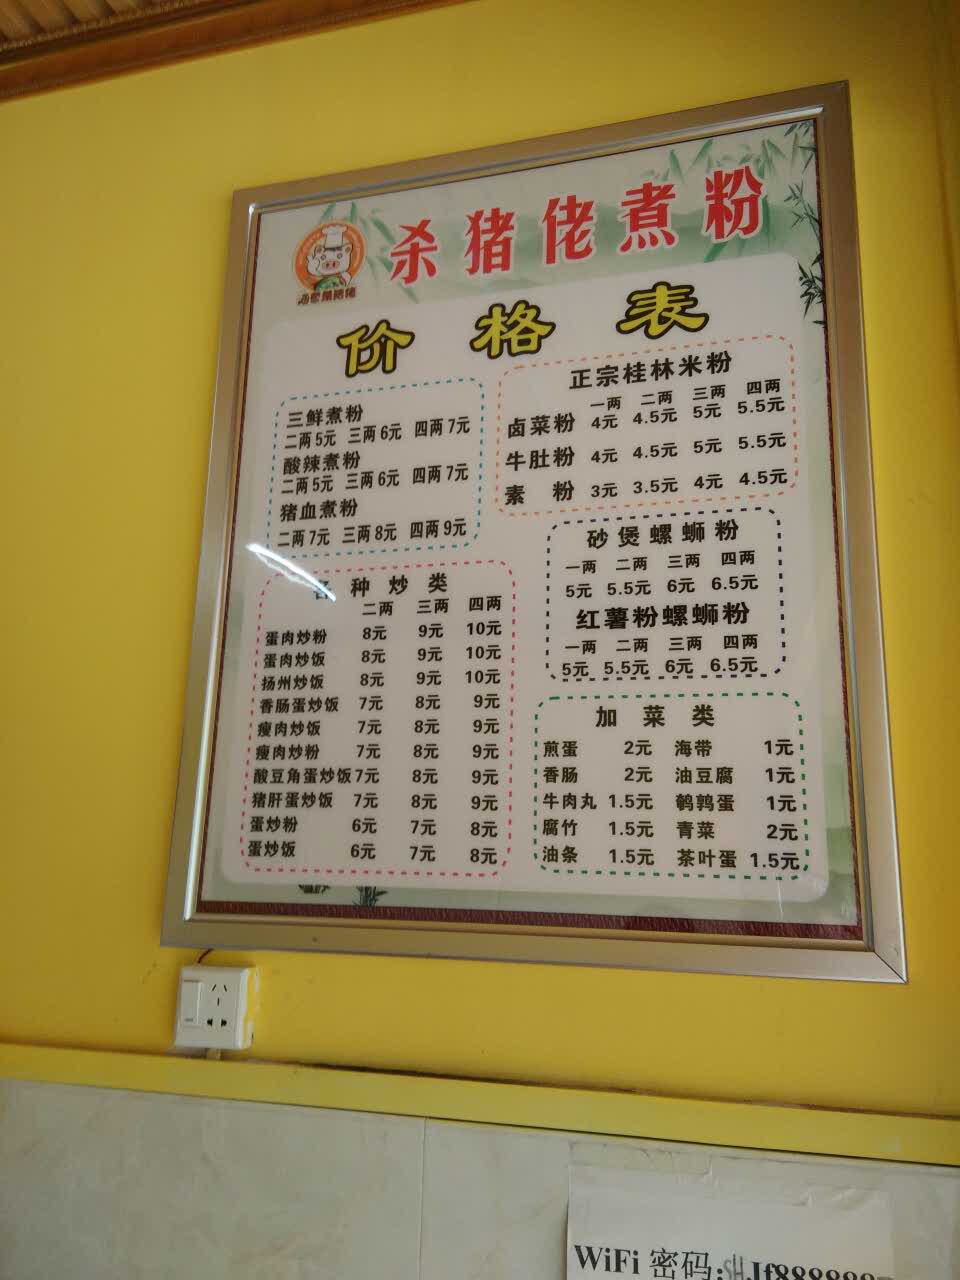 杀猪佬煮粉
价格表
三鲜煮粉
二两5元 三两6元 四两7元
酸辣煮粉
二两5元 三两6元 四两7元
猪血煮粉
二两7元 三两8元 四两9元
正宗桂林米粉
一两 二两 三两 四两
卤菜粉 4元 4.5元 5元 5.5元
牛肚粉 4元 4.5元 5元 5.5元
素 粉 3元 3.5元 4元 4.5元
砂煲螺蛳粉
一两 二两 三两 四两
5元 5.5元 6元 6.5元
红薯粉螺蛳粉
一两 二两 三两 四两
5元 5.5元 6元 6.5元
各种炒类
二两 三两 四两
蛋肉炒粉 8元 9元 10元
蛋肉炒饭 8元 9元 10元
扬州炒饭 8元 9元 10元
香肠蛋炒饭 7元 8元 9元
瘦肉炒饭 7元 8元 9元
瘦肉炒粉 7元 8元 9元
酸豆角蛋炒饭 7元 8元 9元
猪肝蛋炒饭 7元 8元 9元
蛋炒粉 6元 7元 8元
蛋炒饭 6元 7元 8元
加菜类
煎蛋 2元 海带 1元
香肠 2元 油豆腐 1元
牛肉丸 1.5元 鹌鹑蛋 1元
腐竹 1.5元 青菜 2元
油条 1.5元 茶叶蛋 1.5元
WiFi 密码: